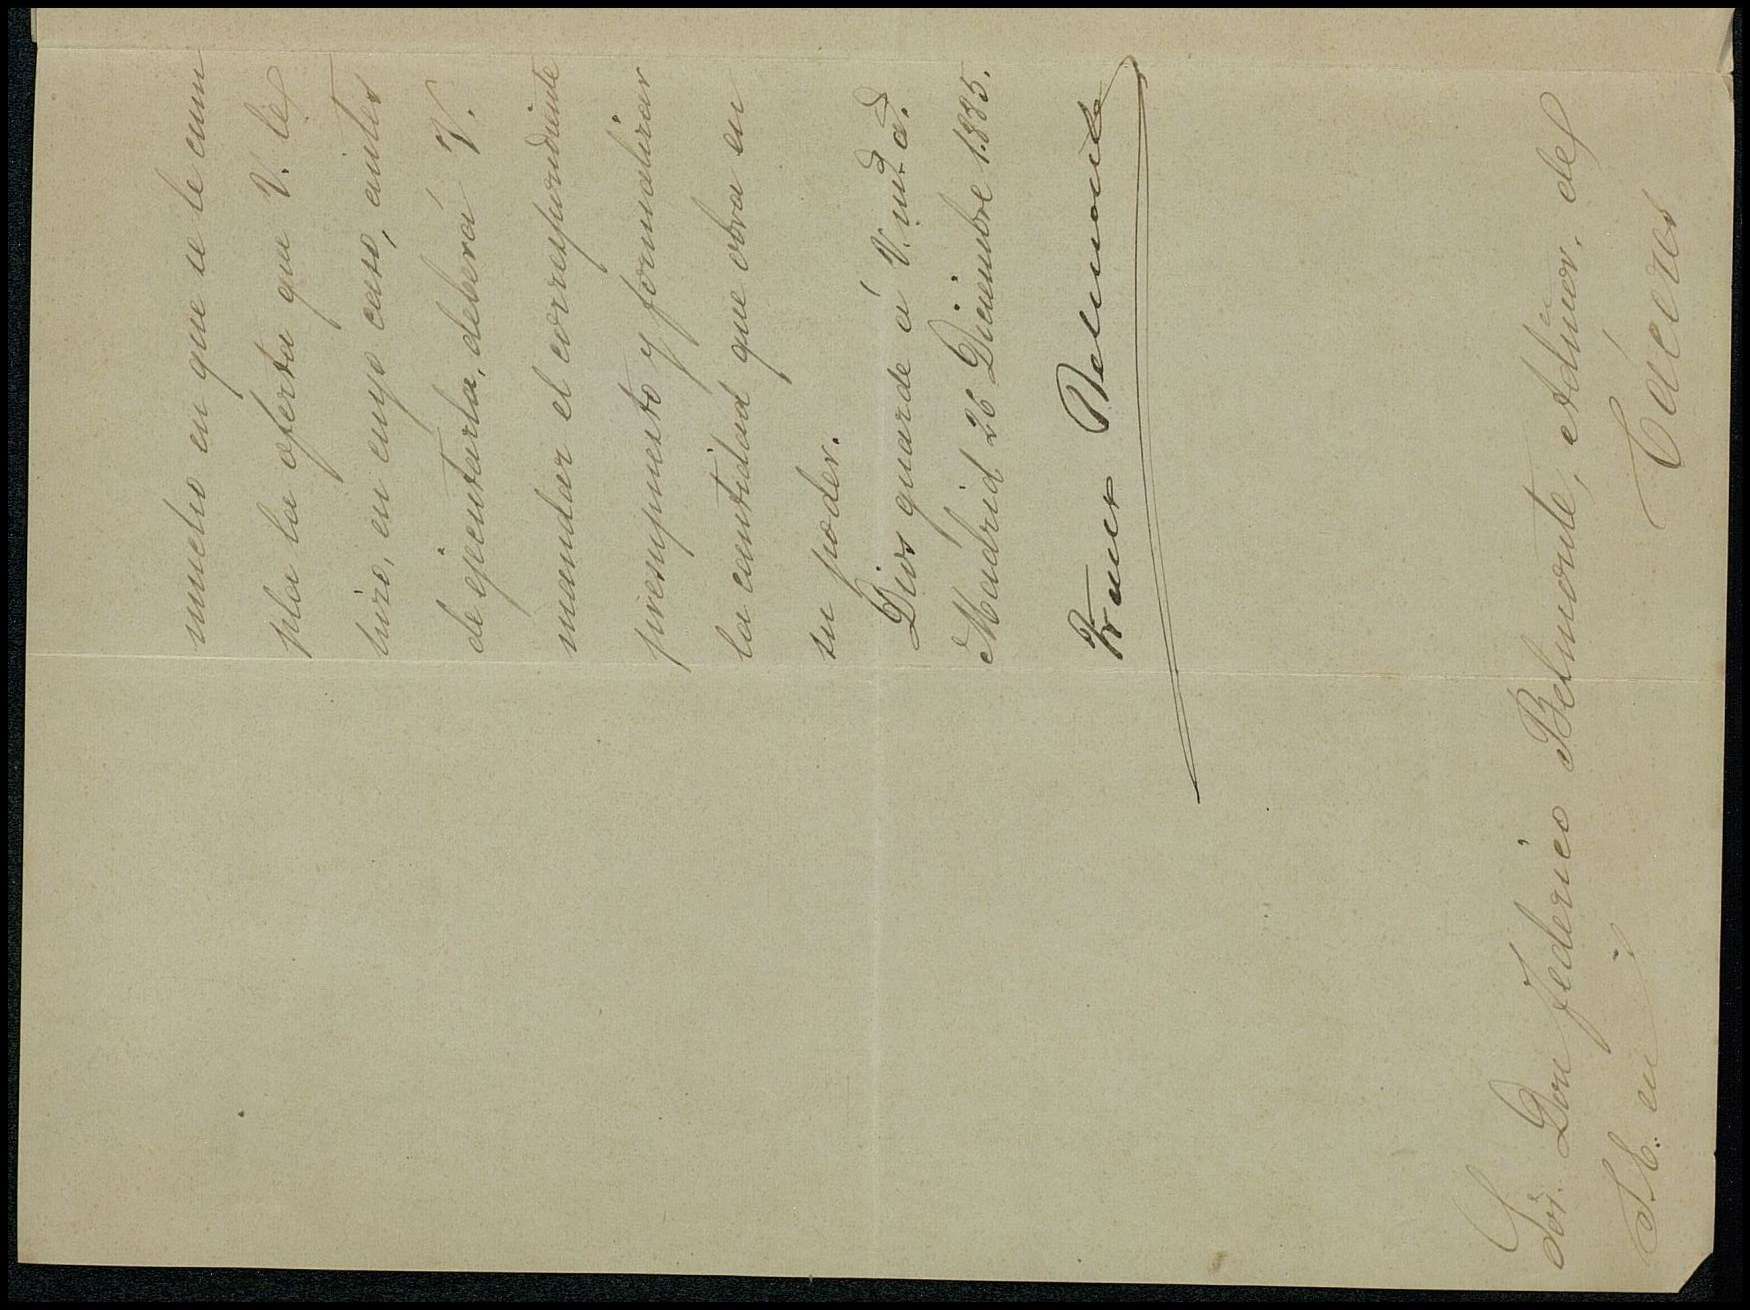 mucho en que se le cum
pla la oferta que V. les
hizo, en cuyo caso, antes
de ejecutarla, deberá V.
mandar el correspondiente
presupuesto y formalizar
la cantidad que obra en
su poder.
Dios guarde á V. m.s a.s
Madrid 26 Diciembre 1.885.
Fran.co Belmonte
Sor. Don Federico Belmonte, Admor. del
S. E. en Cáceres